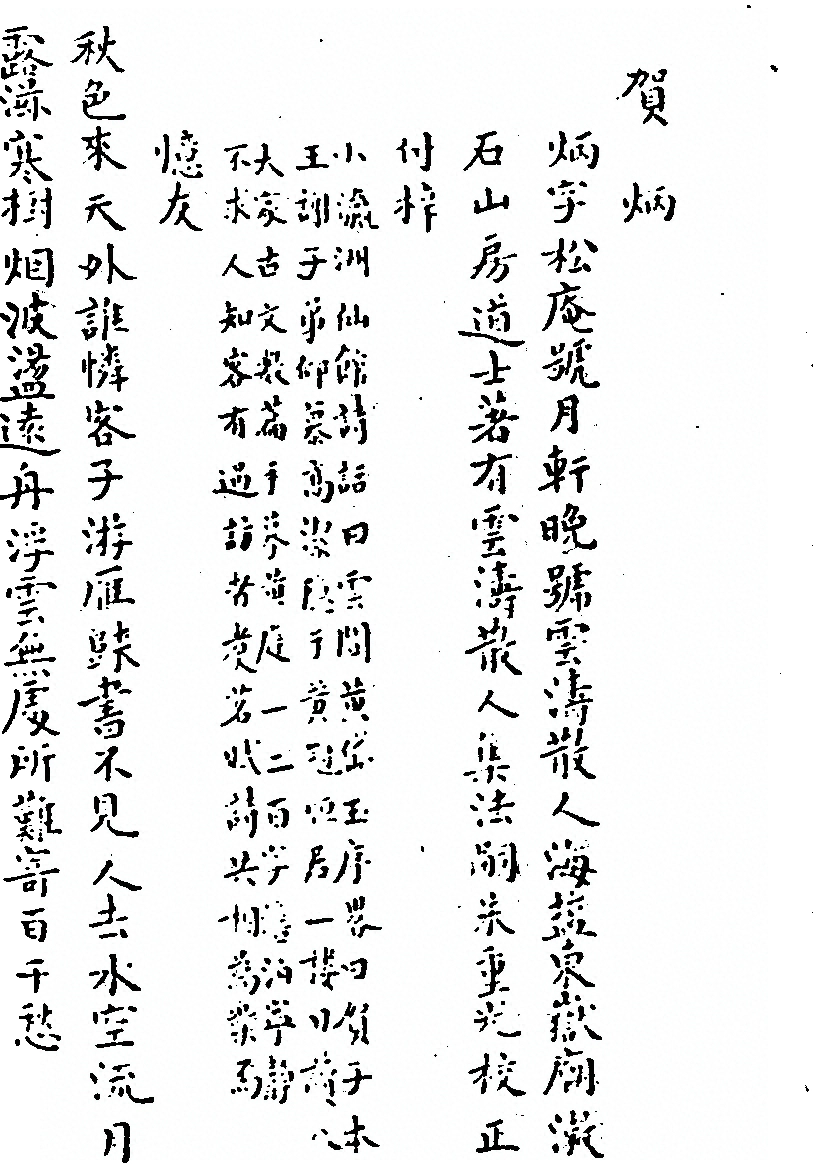 賀炳
炳字松庵號月軒晚號雲濤散人海鹽東嶽廟漱
石山房道士著有雲濤散人集法嗣朱重光校正
付梓
小瀛洲仙館詩話曰雲間黃岱玉序畧曰賀子本
王謝子弟仰慕高潔隱于黃冠恒居一樓日讀八
大家古文數篇手摹黃庭一二百字澹泊寧靜
不求人知客有過訪者煑茗賦詩共相為樂焉
憶友
秋色來天外誰憐客子游雁歸書不見人去水空流月
露滋寒樹烟波盪遠舟浮雲無處所難寄百千愁